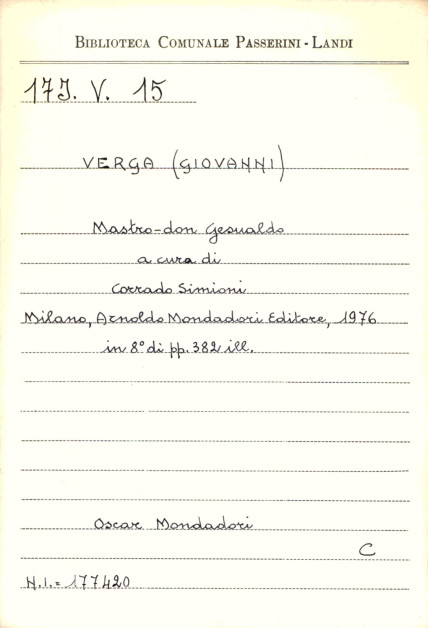 BIBLIOTECA COMUNALE PASSERINI - LANDI
17J. V. 15
VERGA (GIOVANNI)
Mastro-don Gesualdo
a cura di
Corrado Simioni
Milano, Arnoldo Mondadori Editore, 1976
in 8° di pp. 382 ill.
Oscar Mondadori
C
N.I.= 177420